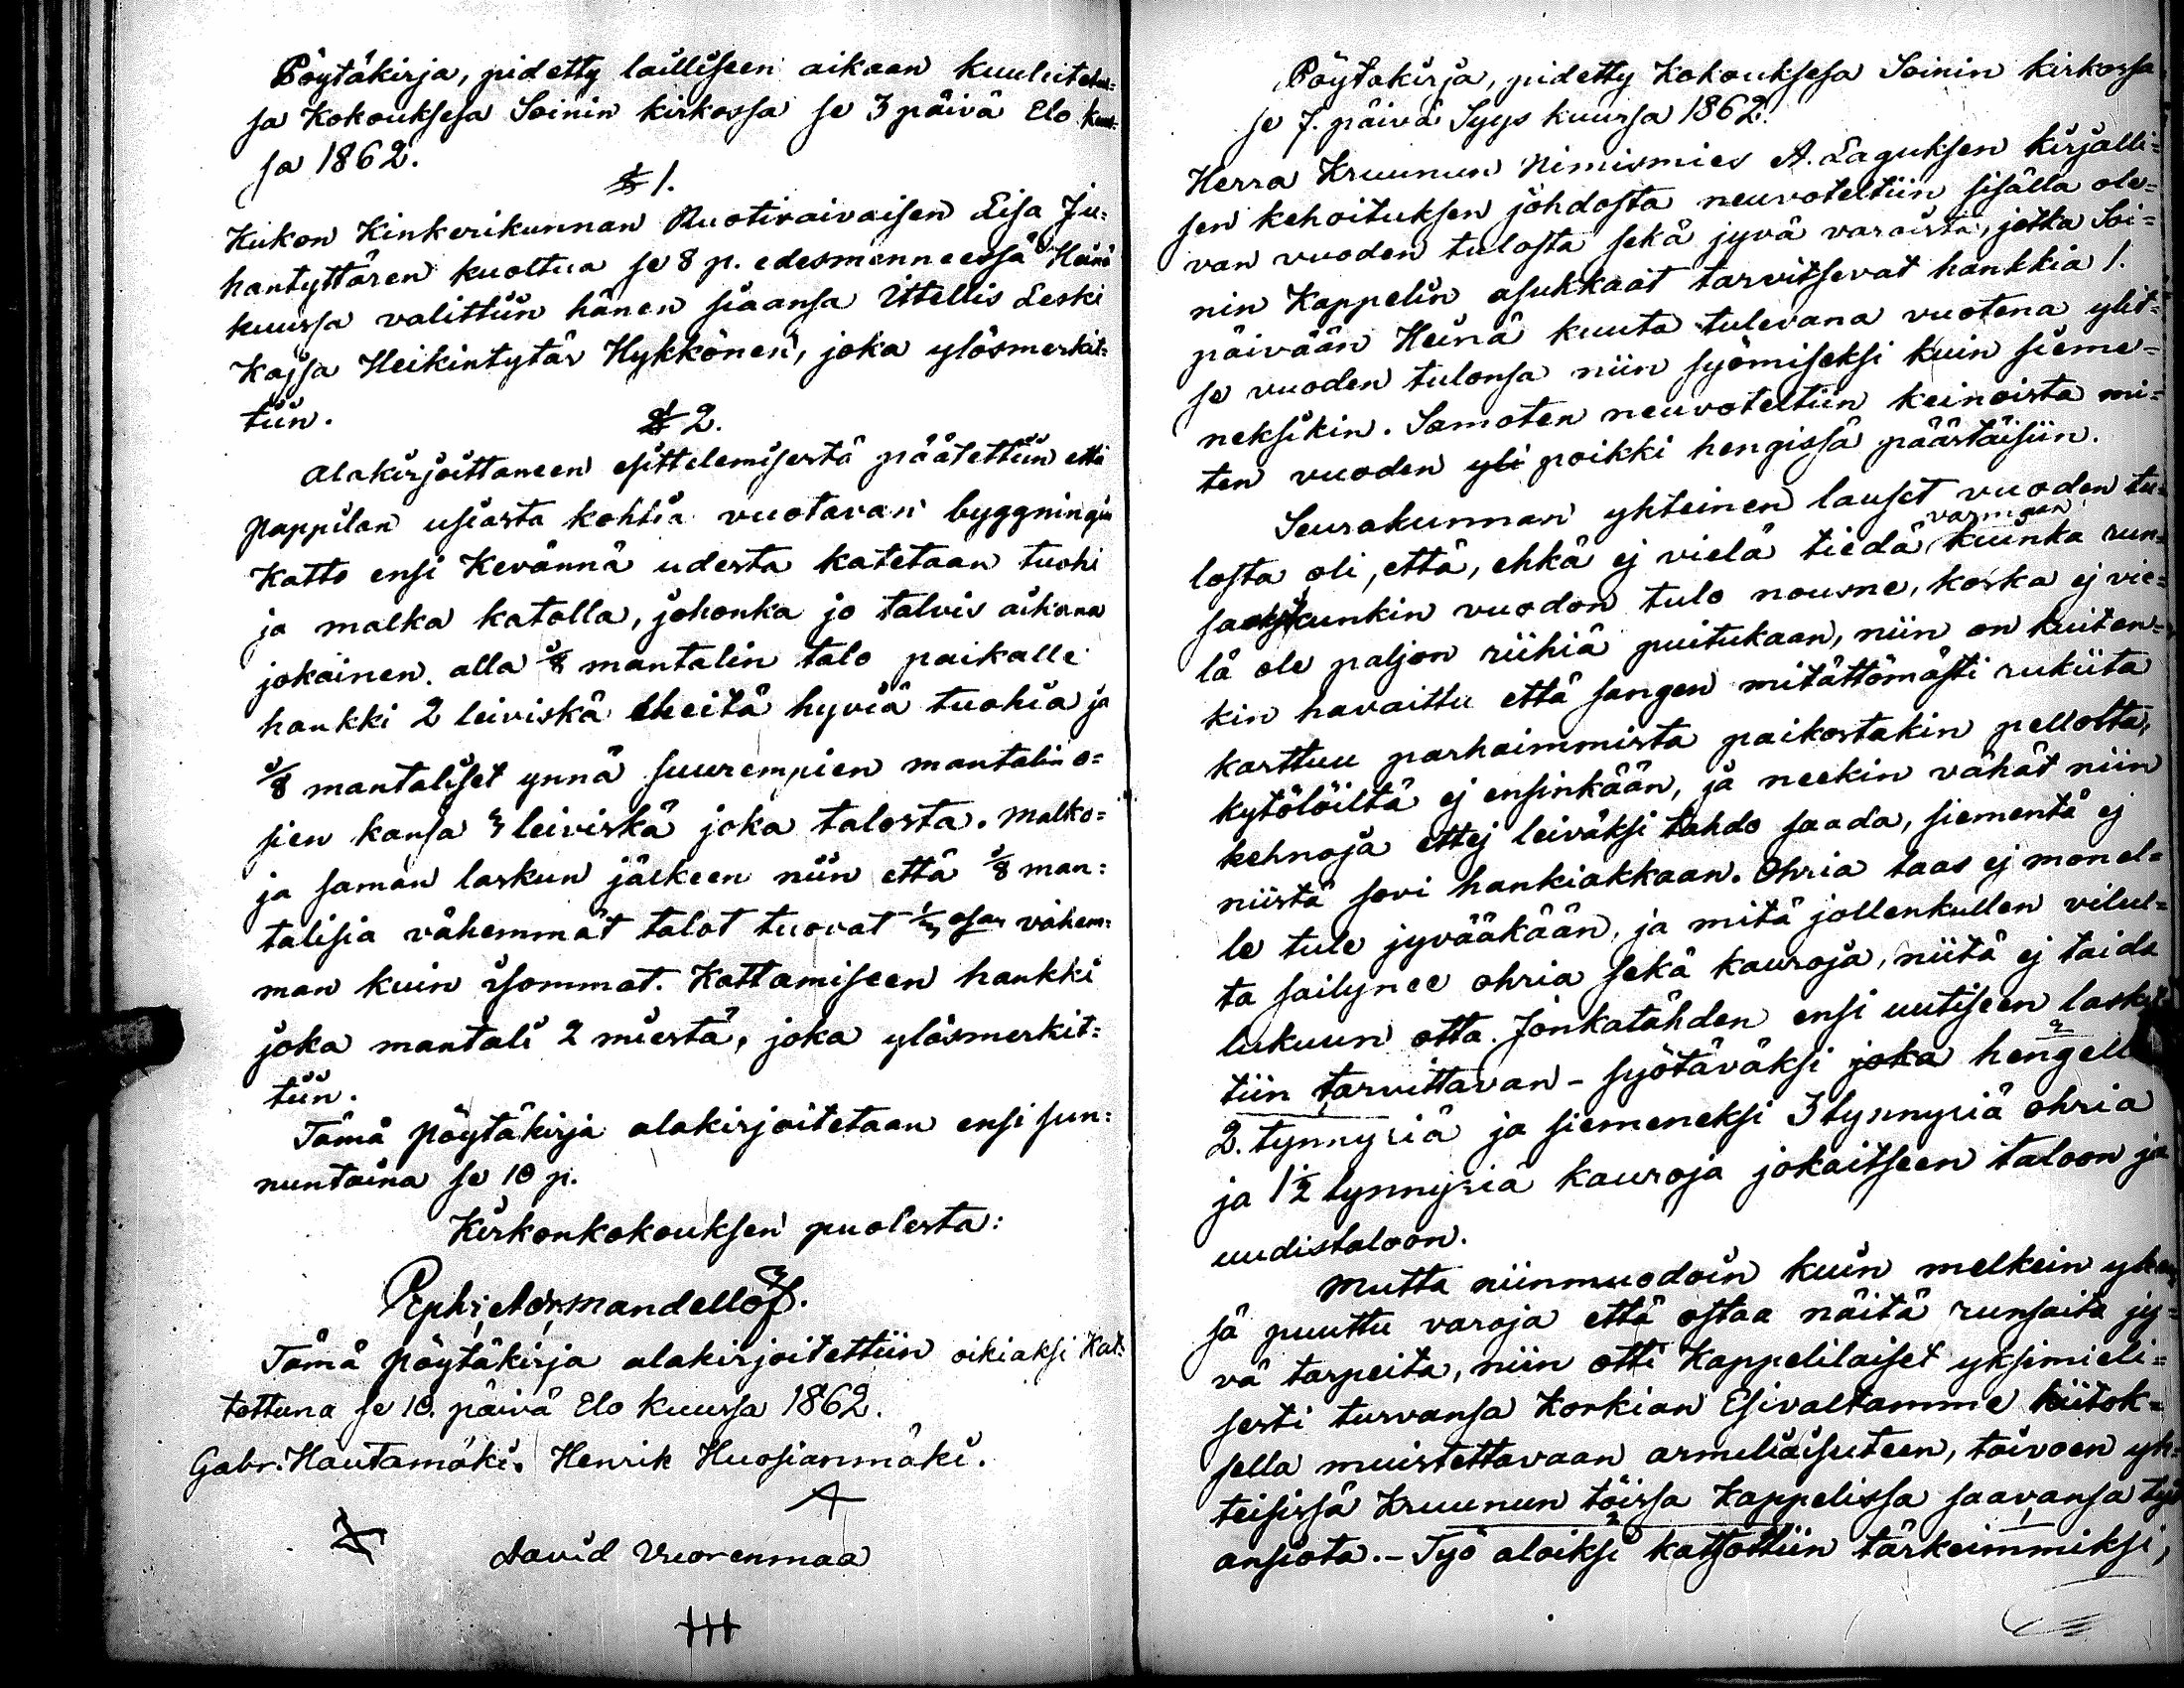 Pöytäkirja, pidetty lailliseen aikaan kuulutetus=
sa Kokouksesa Soinin kirkossa se 3 päivä Elo kuu=
sa 1862.
§ 1.
Kukon Kinkerikunnan Ruotivaivaisen Lisa Ju=
hantyttären kuoltua se 8 p. edesmenneessä Heinä
kuussa valittiin hänen siaansa Ittellis Leski
Kajsa Heikintytär Hykkönen, joka ylösmerkit=
tiin.
§ 2.
Alakirjoittaneen esittelemisestä päätettiin että
Pappilan usiasta kohtia vuotavan byggningin
Katto ensi Kevännä udesta katetaan tuohi
ja malka katolla, johonka jo talvis aikana
jokainen alla 3/8 mantalin talo paikalle
hankki 2 leiviskä eheitä hyviä tuohia ja
3/8 mantaliset ynnä suurempien mantalin o=
sien kansa 3 leiviskä joka talosta. Malko=
ja saman laskun jälkeen niin että 3/8 man=
talisia vähemmät talot tuovat 1/3 osan vähem=
män kuin isommat. Kattamiseen hankki
joka mantali 2 miestä, joka ylösmerkit=
tiin.
Tämä pöytäkirja alakirjoitetaan ensi sun=
nuntaina se 10 p.
Kirkonkokouksen puolesta:
Tämä pöytäkirja alakirjoitettiin oikiaksi Kat=
tottuna se 10. päivä Elo kuussa 1862.
Gabr. Hautamäki. Henrik Huosianmäki.
David Vuorenmaa
Pöytäkirja, pidetty Kokouksesa Soinin kirkossa
se 7. päivä Syys kuussa 1862.
Herra Kruunun Nimismies A. Laguksen kirjalli=
sen kehoituksen johdosta neuvoteltiin sisällä ole=
van vuoden tulosta sekä jyvä varoista, jotka Soi=
nin Kappelin asukkaat tarvitsevat hankkia 1.
päivään Heinä kuuta tulevana vuotena ylit=
se vuoden tulonsa niin syömiseksi kuin sieme=
neksikin. Samoten neuvoteltiin keinoista mi=
ten vuoden yli poikki hengissä päästäisiin.
Seurakunnan yhteinen lauset vuoden tu=
losta oli, että, ehkä ej vielä tiedä varmaan kuinka run=
saskunkin vuodon tulo nousne, koska ej vie=
lä ole paljon riihiä puitukaan, niin on kuiten=
kin havaittu että sangen mitättömästi rukiita
karttuu parhaimmista paikostakin pellolta,
kytölöiltä ej ensinkään, ja neekin vähät niin
kehnoja ettej leiväksi tahdo saada, siementä ej
niistä sovi hankiakkaan. Ohria taas ej monel=
le tule jyvääkään, ja mitä jollenkullen vilul=
ta sailynee ohria sekä kauroja, niitä ej taida
lukuun otta. Jonkatähden ensi uutiseen laskit=
tiin tarvittavan - syötäväksi joka hengelle
2. tynnyriä ja siemeneksi 3 tynnyriä ohria
ja 1 1/2 tynnyriä kauroja jokaitseen taloon ja
uudistaloon.
Mutta niinmuodoin kuin melkein
sä puuttu varoja että ostaa näitä runsaita jy=
vä tarpeita, niin otti Kappelilaiset yksimieli=
sesti turvansa Korkian Esivaltamme kiitok=
sella muistettavaan armeliaisuteen, toivoen yh=
teisissä Kruunun töissä Kappelissa saavansa työ
ansiota. - Työ aloiksi katsottiin tärkeimmiksi,